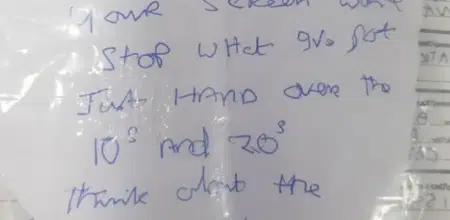 your screen wont
Stop what gvs got
Just HAND over the
10s and 20s
think about the